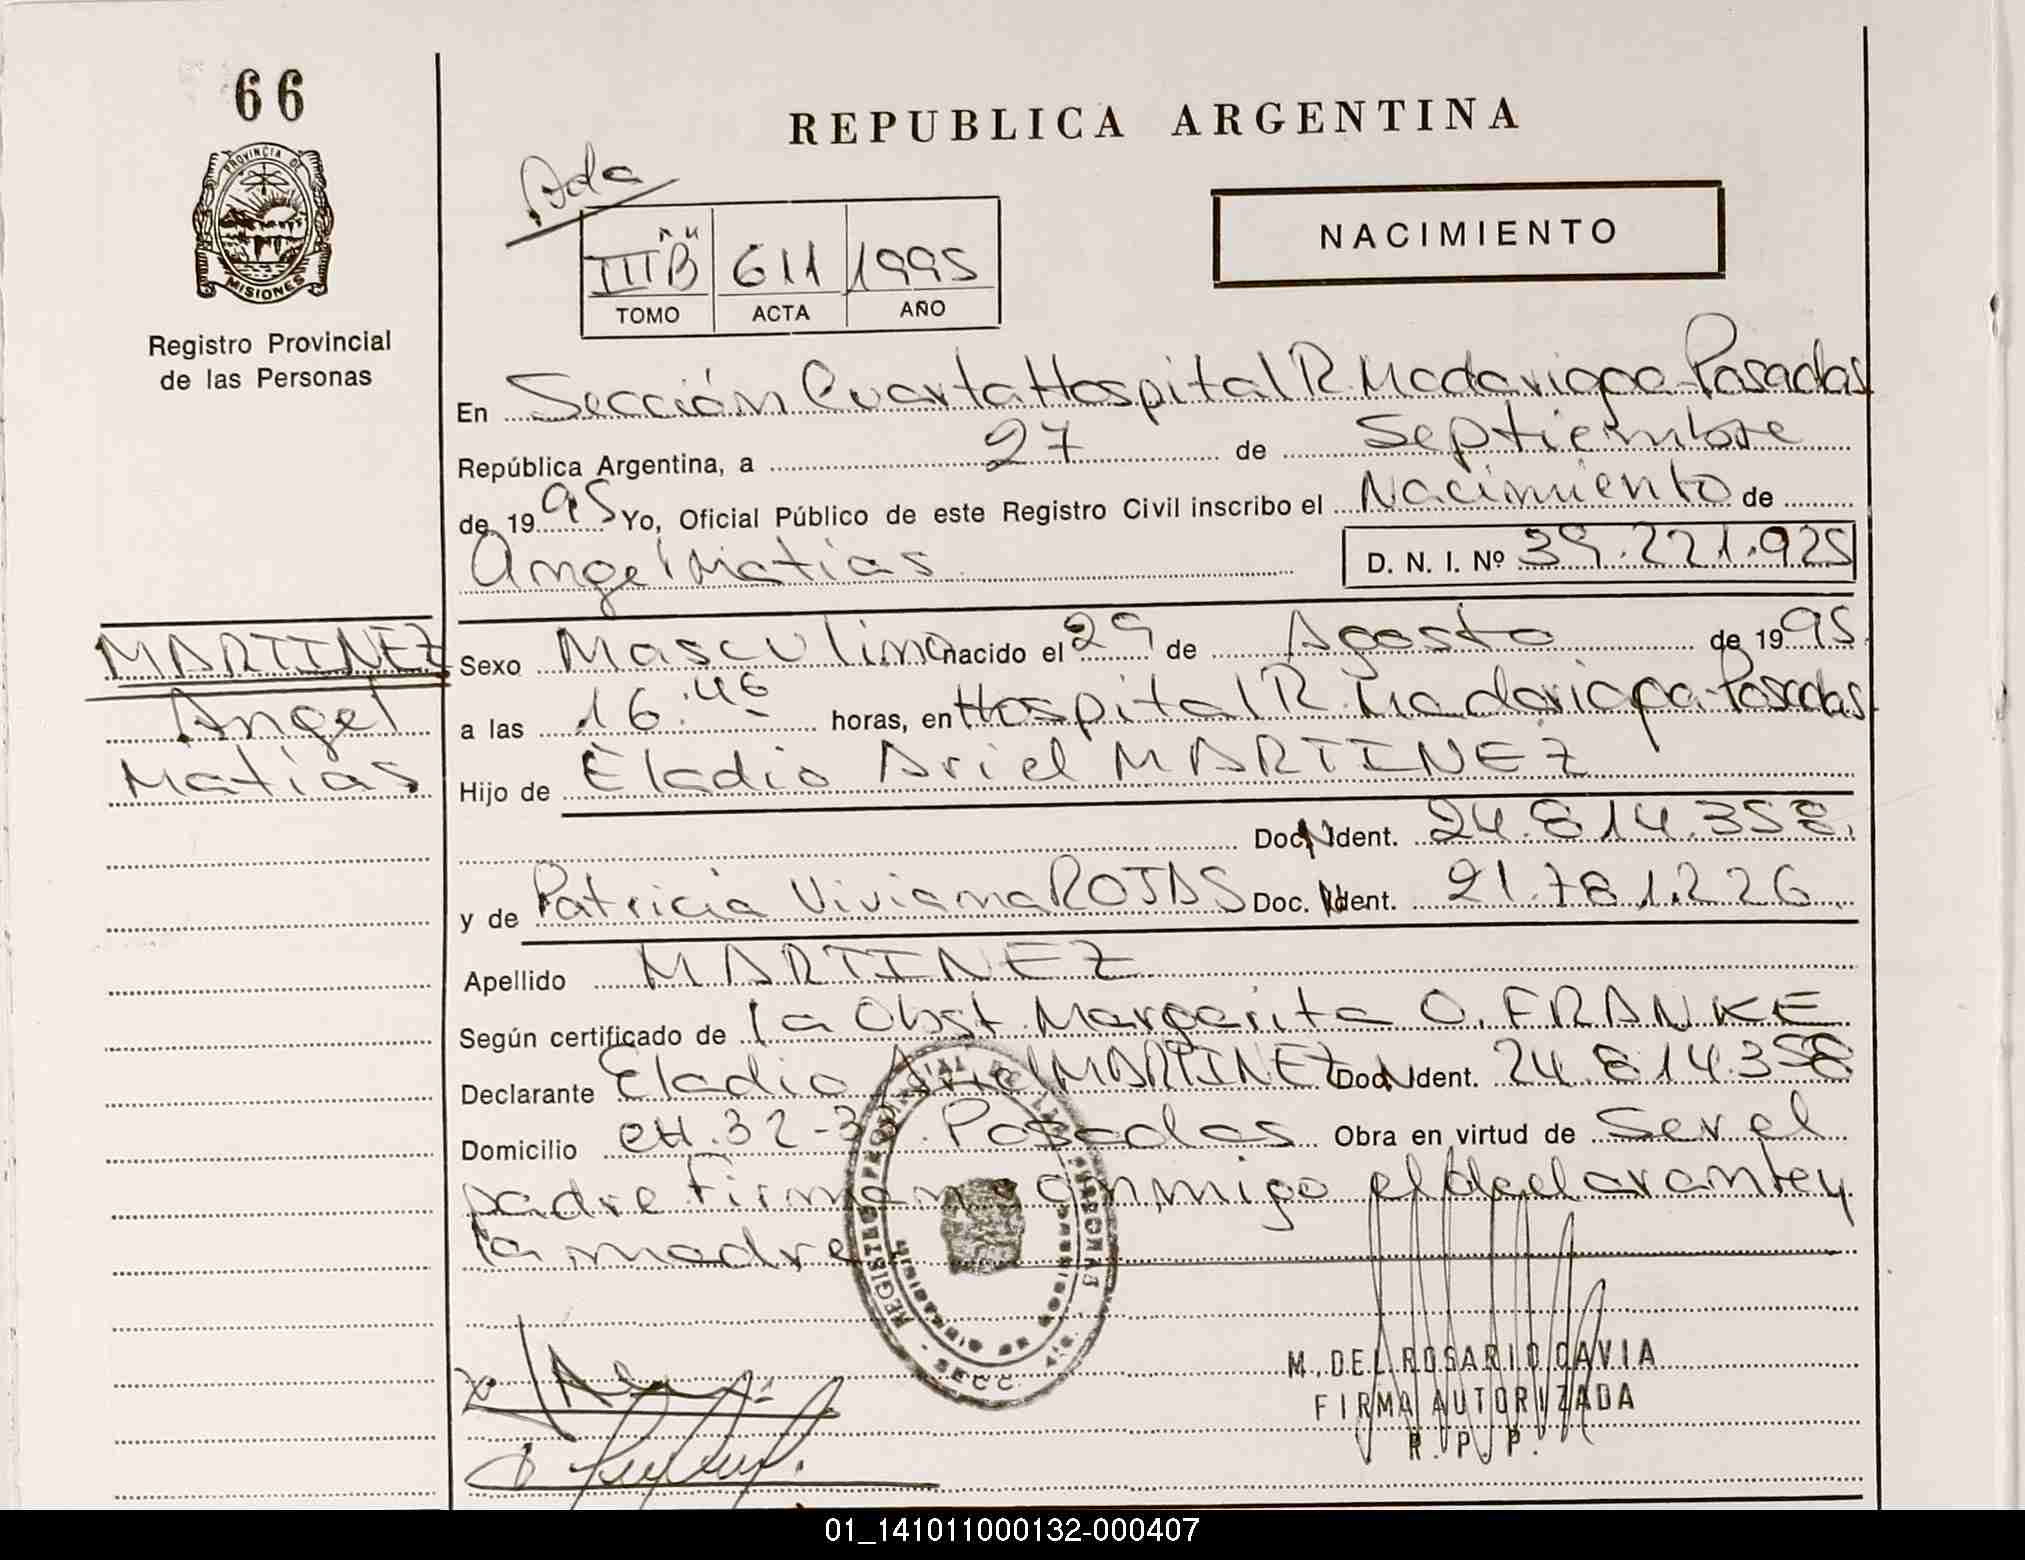 66
REPUBLICA ARGENTINA
PROVINCIA DE
MISIONES
Registro Provincial
de las Personas
Ada
III "B" 611 1995
TOMO ACTA AÑO
NACIMIENTO
En Sección Cuarta Hospital R. Madariaga-Posadas
República Argentina, a 27 de Septiembre
de 1995 Yo, Oficial Público de este Registro Civil inscribo el Nacimiento de
Angel Matias D. N. I. Nº 39.221.925
MARTINEZ
Angel
Matias
Sexo Masculino nacido el 29 de Agosto de 1995
a las 16:46 horas, en Hospital R. Madariaga-Posadas
Hijo de Eladio Ariel MARTINEZ
Doc. N Ident. 24.814.358.
y de Patricia Viviana ROJAS Doc. Ident. 21.781.226
Apellido MARTINEZ
Según certificado de la Obst. Margarita O. FRANKE
Declarante Eladio Ariel MARTINEZ Doc. N Ident. 24.814.358
Domicilio CH.32-33. Posadas Obra en virtud de Ser el
padre firman conmigo el declarante y
la madre
REGISTRO PROVINCIAL DE LAS PERSONAS
SECC. 4ta.
M. DEL ROSARIO CAVIA
FIRMA AUTORIZADA
R. P. P.
01_141011000132-000407